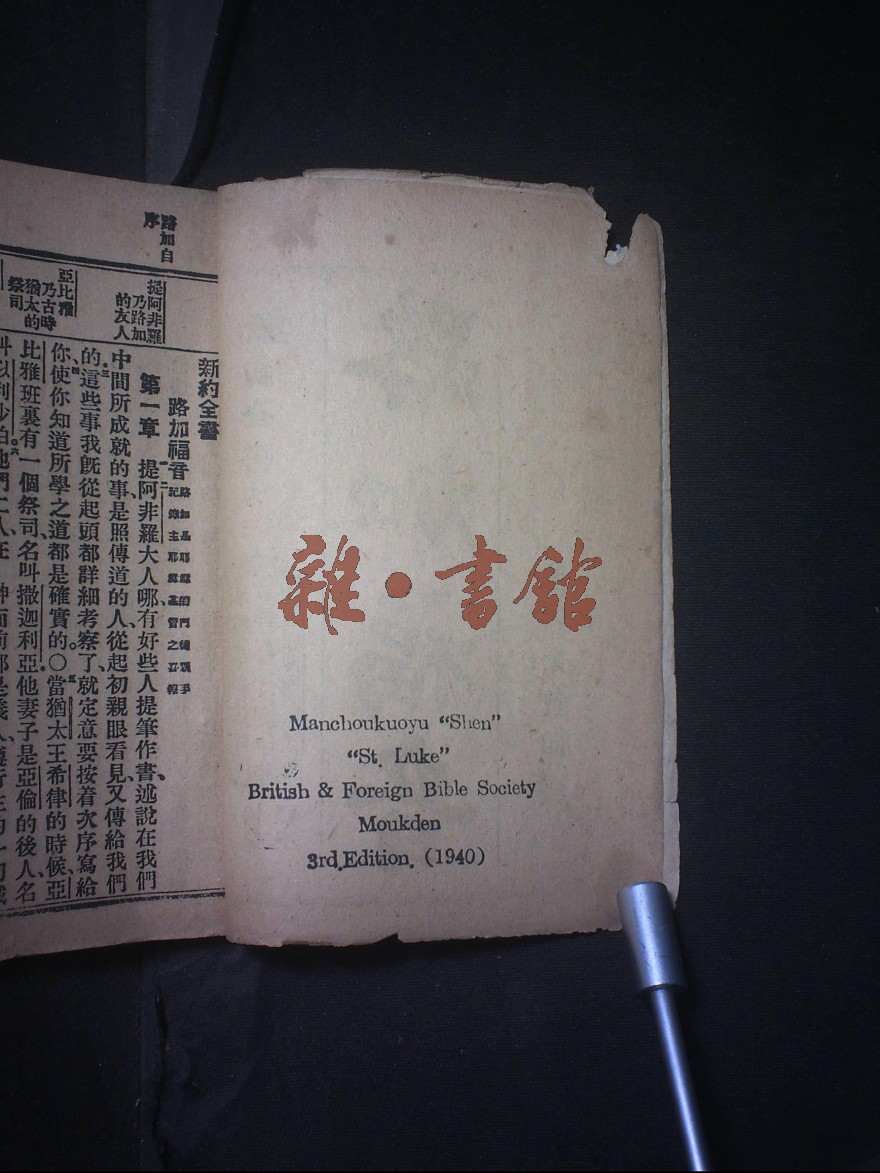 雜·書館
Manchoukuoyu “Shen”
“St. Luke”
British & Foreign Bible Society
Moukden
3rd.Edition. (1940)
路加自
序
提阿非羅
乃路加
的友人
亞比雅
乃古時
猶太的
祭司
新約全書
路加福音
第一章 提阿非羅大人哪、有好些人提筆作書、述說在我們
中間所成就的事、是照傳道的人、從起初親眼看見、又傳給我們
的、這些事我旣從起頭都詳細考察了、就定意要按着次序寫給
你使你知道所學之道都是確實的。○當猶太王希律的時候、亞
比雅班裏有一個祭司、名叫撒迦利亞、他妻子是亞倫的後人、名